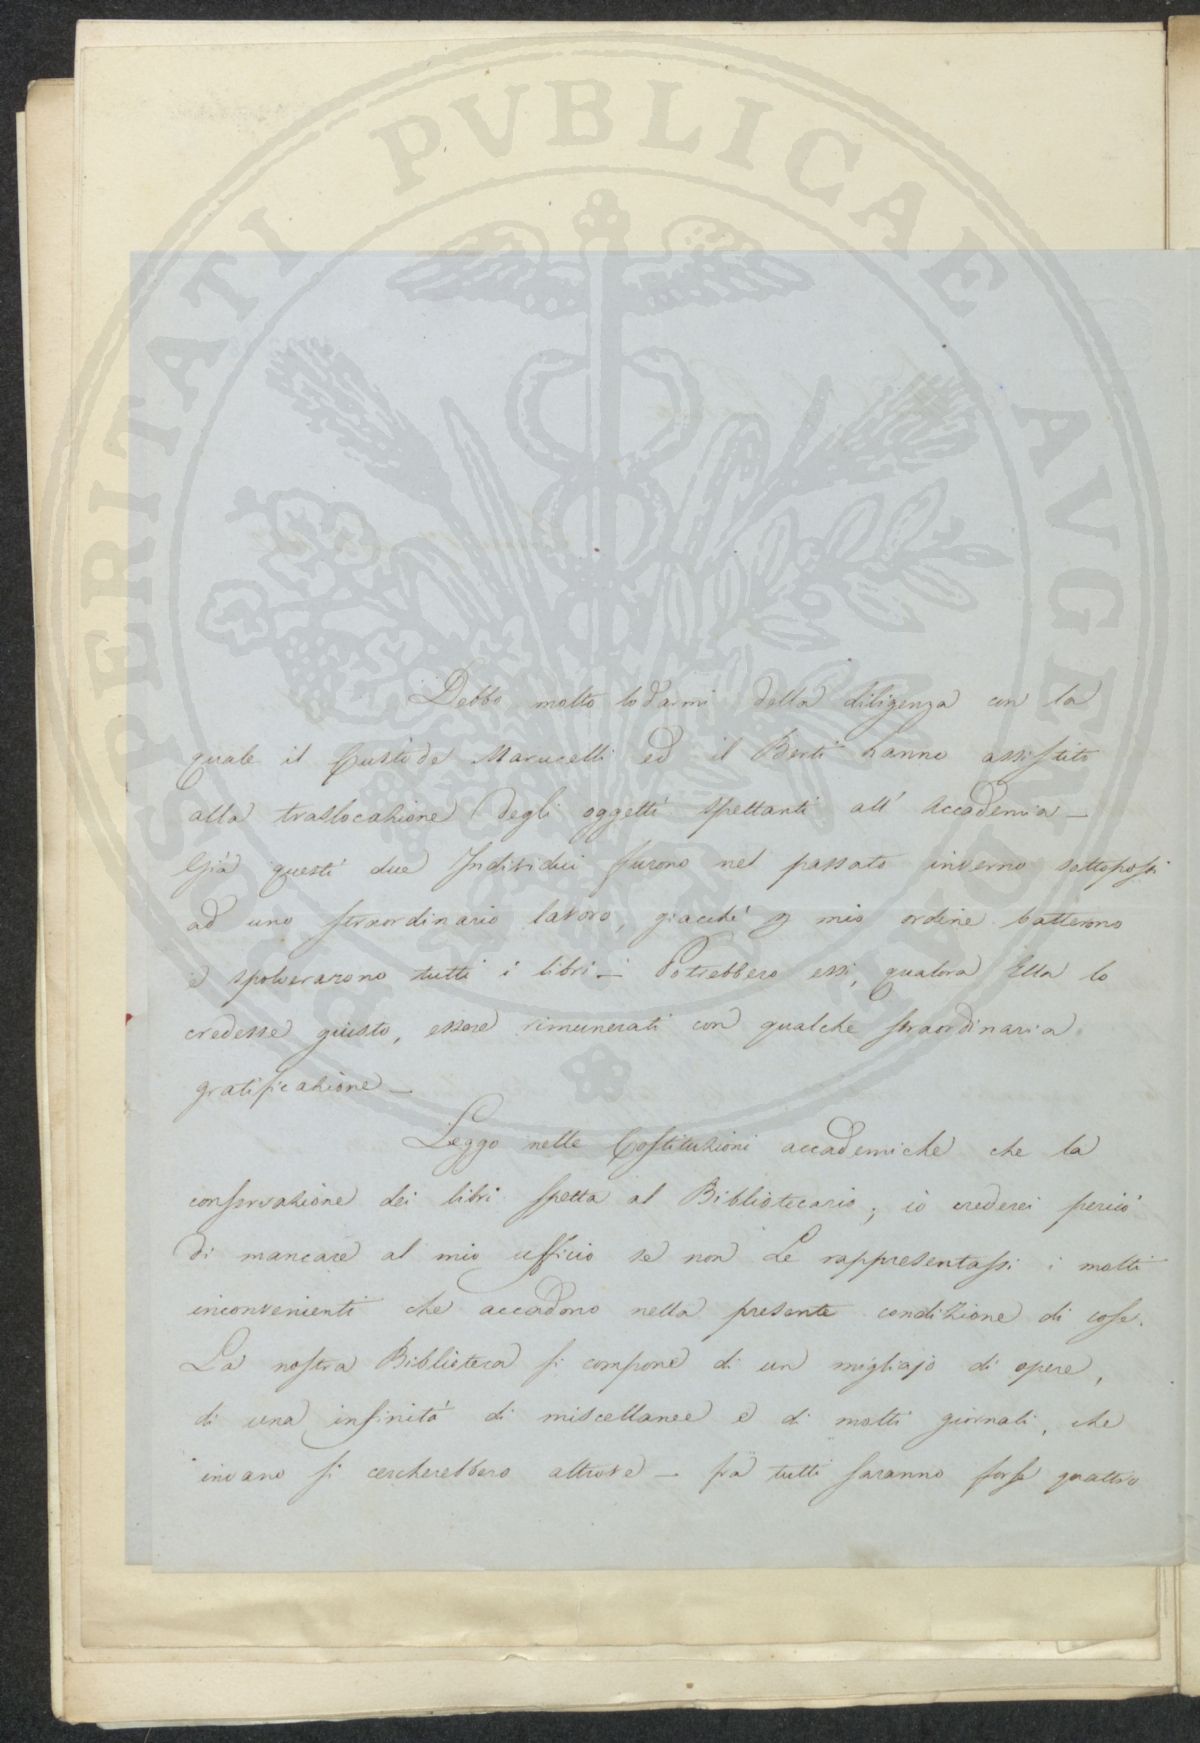 PROSPERITATI PVBLICAE AVGENDAE
Debbo molto lodarmi della diligenza con la
quale il Custode Marucelli ed il Berti hanno assistito
alla traslocazione degli oggetti spettanti all' Accademia —
Già questi due Individui furono nel passato inverno sottoposti
ad uno straordinario lavoro, giacché p mio ordine batterono
e spolverarono tutti i libri — Potrebbero essi, qualora Ella lo
credesse giusto, essere rimunerati con qualche straordinaria
gratificazione —
Leggo nelle Costituzioni accademiche che la
conservazione dei libri spetta al Bibliotecario; io crederei perciò
di mancare al mio ufficio se non Le rappresentassi i molti
inconvenienti che accadono nella presente condizione di cose.
La nostra Biblioteca si compone di un migliajo di opere,
di una infinità di miscellanee e di molti giornali, che
invano si cercherebbero altrove — fra tutti saranno forse quattro